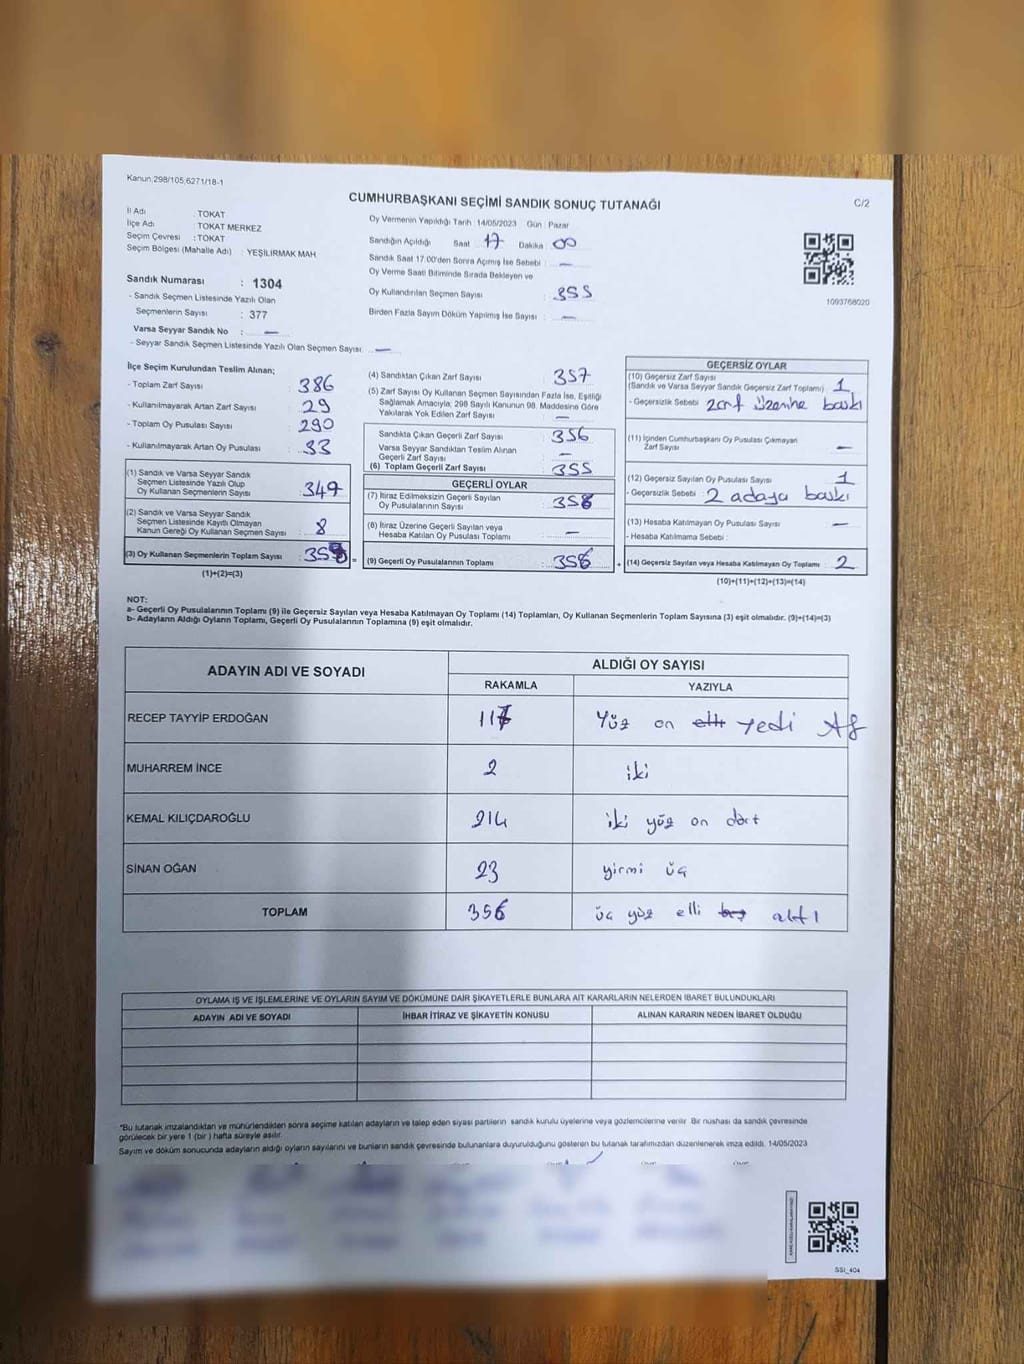 Kanun:298/105;6271/18-1
CUMHURBAŞKANI SEÇİMİ SANDIK SONUÇ TUTANAĞI
C/2
İl Adı : TOKAT
İlçe Adı : TOKAT MERKEZ
Seçim Çevresi : TOKAT
Seçim Bölgesi (Mahalle Adı) : YEŞİLIRMAK MAH
Sandık Numarası : 1304
- Sandık Seçmen Listesinde Yazılı Olan
Seçmenlerin Sayısı : 377
Varsa Seyyar Sandık No : —
- Seyyar Sandık Seçmen Listesinde Yazılı Olan Seçmen Sayısı: —
Oy Vermenin Yapıldığı Tarih :14/05/2023 Gün : Pazar
Sandığın Açıldığı Saat : 17 Dakika : 00
Sandık Saat 17.00'den Sonra Açılmış İse Sebebi : —
Oy Verme Saati Bitiminde Sırada Bekleyen ve
Oy Kullandırılan Seçmen Sayısı : 355
Birden Fazla Sayım Döküm Yapılmış İse Sayısı : —
1093768020
İlçe Seçim Kurulundan Teslim Alınan;
- Toplam Zarf Sayısı : 386
- Kullanılmayarak Artan Zarf Sayısı : 29
- Toplam Oy Pusulası Sayısı : 290
- Kullanılmayarak Artan Oy Pusulası : 33
(1) Sandık ve Varsa Seyyar Sandık
Seçmen Listesinde Yazılı Olup
Oy Kullanan Seçmenlerin Sayısı : 349
(2) Sandık ve Varsa Seyyar Sandık
Seçmen Listesinde Kayıtlı Olmayan
Kanun Gereği Oy Kullanan Seçmen Sayısı : 8
(3) Oy Kullanan Seçmenlerin Toplam Sayısı :
(1)+(2)=(3)
(4) Sandıktan Çıkan Zarf Sayısı : 357
(5) Zarf Sayısı Oy Kullanan Seçmen Sayısından Fazla İse, Eşitliği
Sağlamak Amacıyla; 298 Sayılı Kanunun 98. Maddesine Göre
Yakılarak Yok Edilen Zarf Sayısı : —
Sandıkta Çıkan Geçerli Zarf Sayısı : 356
Varsa Seyyar Sandıktan Teslim Alınan
Geçerli Zarf Sayısı : —
(6) Toplam Geçerli Zarf Sayısı : 355
GEÇERLİ OYLAR
(7) İtiraz Edilmeksizin Geçerli Sayılan
Oy Pusulalarının Sayısı : 356
(8) İtiraz Üzerine Geçerli Sayılan veya
Hesaba Katılan Oy Pusulası Toplamı : —
= (9) Geçerli Oy Pusulalarının Toplamı : 356
GEÇERSİZ OYLAR
(10) Geçersiz Zarf Sayısı
(Sandık ve Varsa Seyyar Sandık Geçersiz Zarf Toplamı) : 1
- Geçersizlik Sebebi : zarf üzerine baskı
(11) İçinden Cumhurbaşkanı Oy Pusulası Çıkmayan
Zarf Sayısı : —
(12) Geçersiz Sayılan Oy Pusulası Sayısı : 1
- Geçersizlik Sebebi : 2 adaya baskı
(13) Hesaba Katılmayan Oy Pusulası Sayısı : —
- Hesaba Katılmama Sebebi :
+ (14) Geçersiz Sayılan veya Hesaba Katılmayan Oy Toplamı : 2
(10)+(11)+(12)+(13)=(14)
NOT:
a- Geçerli Oy Pusulalarının Toplamı (9) ile Geçersiz Sayılan veya Hesaba Katılmayan Oy Toplamı (14) Toplamları, Oy Kullanan Seçmenlerin Toplam Sayısına (3) eşit olmalıdır. (9)+(14)=(3)
b- Adayların Aldığı Oyların Toplamı, Geçerli Oy Pusulalarının Toplamına (9) eşit olmalıdır.
ADAYIN ADI VE SOYADI ALDIĞI OY SAYISI
RAKAMLA YAZIYLA
RECEP TAYYİP ERDOĞAN 117 Yüz on elli yedi
MUHARREM İNCE 2 iki
KEMAL KILIÇDAROĞLU 214 iki yüz on dört
SİNAN OĞAN 23 yirmi üç
TOPLAM 356 üç yüz elli beş altı
OYLAMA İŞ VE İŞLEMLERİNE VE OYLARIN SAYIM VE DÖKÜMÜNE DAİR ŞİKAYETLERLE BUNLARA AİT KARARLARIN NELERDEN İBARET BULUNDUKLARI
ADAYIN ADI VE SOYADI İHBAR İTİRAZ VE ŞİKAYETİN KONUSU ALINAN KARARIN NEDEN İBARET OLDUĞU
*Bu tutanak imzalandıktan ve mühürlendikten sonra seçime katılan adayların ve talep eden siyasi partilerin sandık kurulu üyelerine veya gözlemcilerine verilir. Bir nüshası da sandık çevresinde
görülecek bir yere 1 (bir) hafta süreyle asılır.
Sayım ve döküm sonucunda adayların aldığı oyların sayılarını ve bunların sandık çevresinde bulunanlara duyurulduğunu gösteren bu tutanak tarafımızdan düzenlenerek imza edildi. 14/05/2023
SSI_404